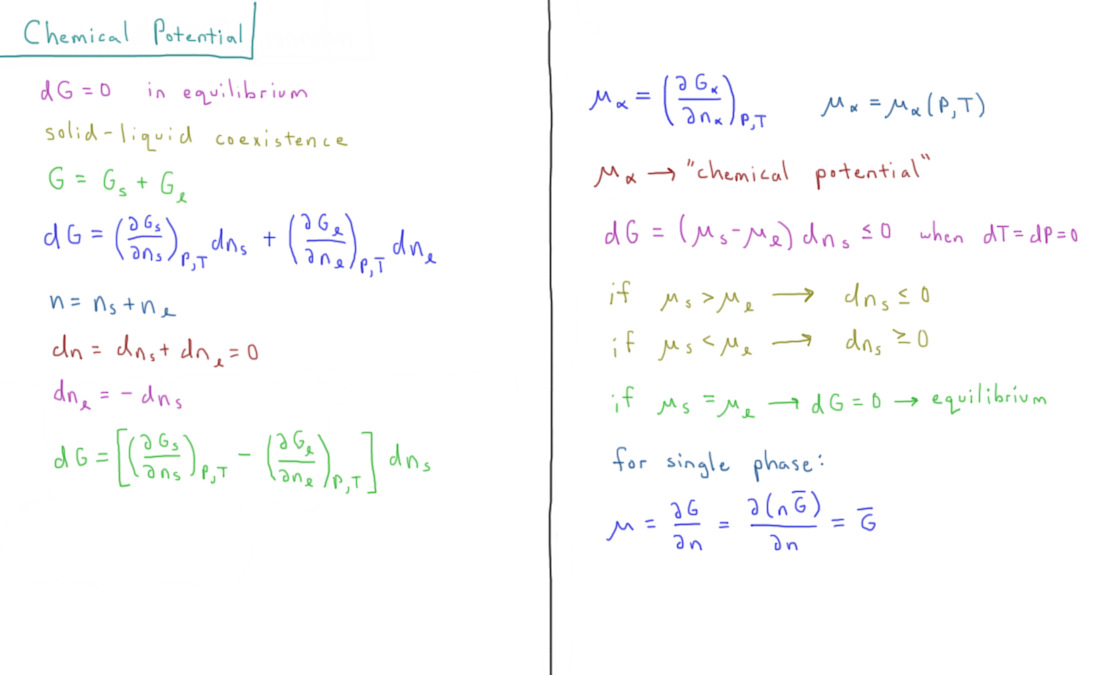 Chemical Potential
dG = 0 in equilibrium
solid-liquid coexistence
G = G_s + G_ℓ
dG = (∂G_s/∂n_s)_P,T dn_s + (∂G_ℓ/∂n_ℓ)_P,T dn_ℓ
n = n_s + n_ℓ
dn = dn_s + dn_ℓ = 0
dn_ℓ = - dn_s
dG = [(∂G_s/∂n_s)_P,T - (∂G_ℓ/∂n_ℓ)_P,T] dn_s
μ_α = (∂G_α/∂n_α)_P,T μ_α = μ_α(P,T)
μ_α → "chemical potential"
dG = (μ_s - μ_ℓ) dn_s ≤ 0 when dT = dP = 0
if μ_s > μ_ℓ → dn_s ≤ 0
if μ_s < μ_ℓ → dn_s ≥ 0
if μ_s = μ_ℓ → dG = 0 → equilibrium
for single phase:
μ = ∂G/∂n = ∂(nG̅)/∂n = G̅